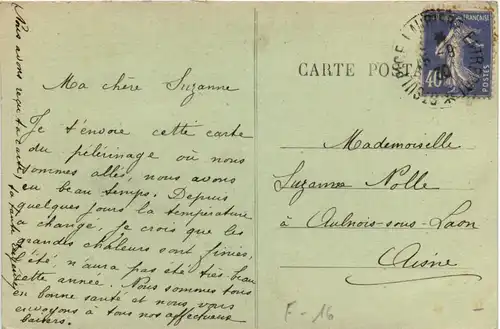 Nous avons reçu ta carte, ta tante
Ma chère Suzanne
Je t'envoie cette carte
du pélérinage où nous
sommes allés, nous avons
eu beau temps. Depuis
quelques jours la température
a changé, je crois que les
grandes chaleurs sont finies,
l'été n'aura pas été très beau
cette année. Nous sommes tous
en bonne santé et nous vous
envoyons à tous nos affectueux
baisers.
CARTE POSTALE
FRANÇAISE
40c
POSTES
Mademoiselle
Suzanne Nolle
à Aulnois-sous-Laon
Aisne
F-16